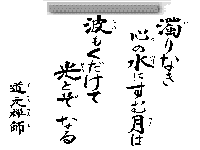 濁りなき
心の水にすむ月は
波もくだけて
光とぞなる
道元禅師